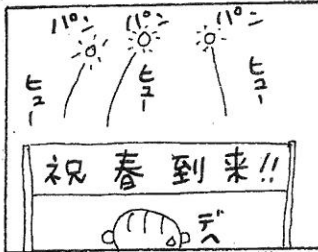 パン
パン
パン
ヒュー
ヒュー
ヒュー
祝春到来!!
デヘ